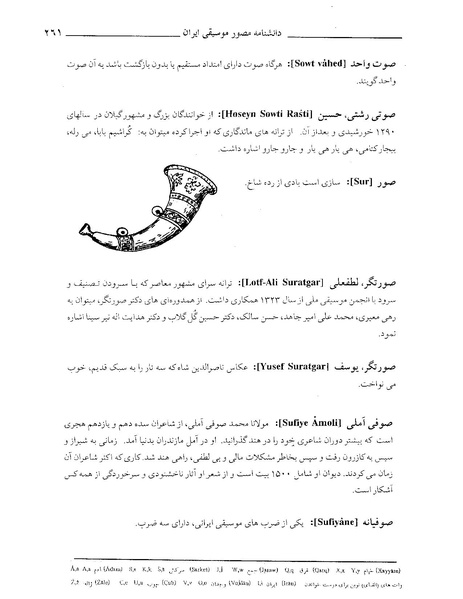 دانشنامه مصور موسیقی ایران ۲۶۱
صوت واحد [Sowt váhed]: هرگاه صوت دارای امتداد مستقیم یا بدون بازگشت باشد به آن صوت
واحد گویند.
صوتی رشتی، حسین [Hoseyn Sowti Rašti]: از خوانندگان بزرگ و مشهور گیلان در سالهای
۱۲۹۰ خورشیدی و بعد از آن. از ترانه های ماندگاری که او اجرا کرده میتوان به: گراشیم بابا، می رله،
بیجارکنامی، هی یار هی یار و جارو جارو اشاره داشت.
صور [Sur]: سازی است بادی از رده شاخ.
صورتگر، لطفعلی [Lotf-Ali Suratgar]: ترانه سرای مشهور معاصر که با سرودن تصنیف و
سرود با انجمن موسیقی ملی از سال ۱۳۲۳ همکاری داشت. از همدوره‌ای های دکتر صورتگر، میتوان به
رهی معیری، محمد علی امیر جاهد، حسن سالک، دکتر حسین گل گلاب و دکتر هدایت اله نیر سینا اشاره
نمود.
صورتگر، یوسف [Yusef Suratgar]: عکاس ناصرالدین شاه که سه تار را به سبک قدیم، خوب
می نواخت.
صوفی آملی [Sufiye Ámoli]: مولانا محمد صوفی آملی، از شاعران سده دهم و یازدهم هجری
است که بیشتر دوران شاعری خود را در هند گذرانید. او در آمل مازندران بدنیا آمد. زمانی به شیراز و
سپس به کازرون رفت و سپس بخاطر مشکلات مالی و بی لطفی، راهی هند شد. کاری که اکثر شاعران آن
زمان می کردند. دیوان او شامل ۱۵۰۰ بیت است و از شعر او آثار ناخشنودی و سرخوردگی از همه کس
آشکار است.
صوفیانه [Sufiyáne]: یکی از ضرب های موسیقی ایرانی، دارای سه ضرب.